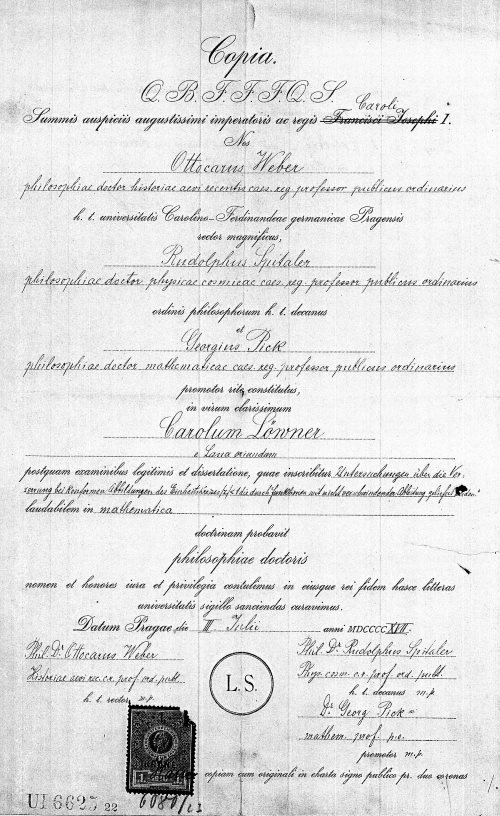 Copia.
Q. B. F. F. F. Q. S.
Caroli
Summis auspiciis augustissimi imperatoris ac regis Francisci Josephi I.
Nos
Ottocarus Weber
philosophiae doctor historiae aevi recentis caes. reg. professor publicus ordinarius
h. t. universitatis Carolino-Ferdinandeae germanicae Pragensis
rector magnificus,
Rudolphus Spitaler
philosophiae doctor physicae cosmicae caes. reg. professor publicus ordinarius
ordinis philosophorum h. t. decanus
et
Georgius Pick
philosophiae doctor mathematicae caes. reg. professor publicus ordinarius
promotor rite constitutus,
in virum clarissimum
Carolum Löwner
e Lana oriundum
postquam examinibus legitimis et dissertatione, quae inscribitur „Untersuchungen über die Ver-
zerrung bei konformen Abbildungen des Einheitskreises |z|<1 die durch Funktionen mit nicht verschwindender Ableitung geliefert werden“
laudabilem in mathematica
doctrinam probavit
philosophiae doctoris
nomen et honores iura et privilegia contulimus in eiusque rei fidem hasce litteras
universitatis sigillo sanciendas curavimus.
Datum Pragae die III. Julii anni MDCCCCXVII.
Phil. Dr. Ottocarus Weber
Historiae aevi rec. c. r. prof. ord. publ.
h. t. rector m. p.
L. S.
Phil. Dr. Rudolphus Spitaler
Phys. cosm. c. r. prof. ord. publ.
h. t. decanus m. p.
Dr. Georg Pick
mathem. prof. p. o.
promotor m. p.
1
copiam cum originali in charta signo publico pr. duo coronas
UI 6625 22
6080/23